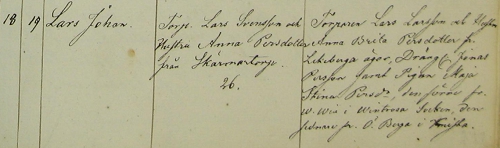 18 19 Lars Johan.
Torp. Lars Svensson och
Hustru Anna Persdotter
från Skarmartorp.
26.
Torparen Lars Larsson och Hustru
Anna Brita Persdotter fr.
Lekeberga ägor, Dräng Jonas
Persson samt Pigan Maja
Stina Persd., den förre fr.
W. Wia i Wintrosa Socken, den
sednare fr. Ö. Boga i